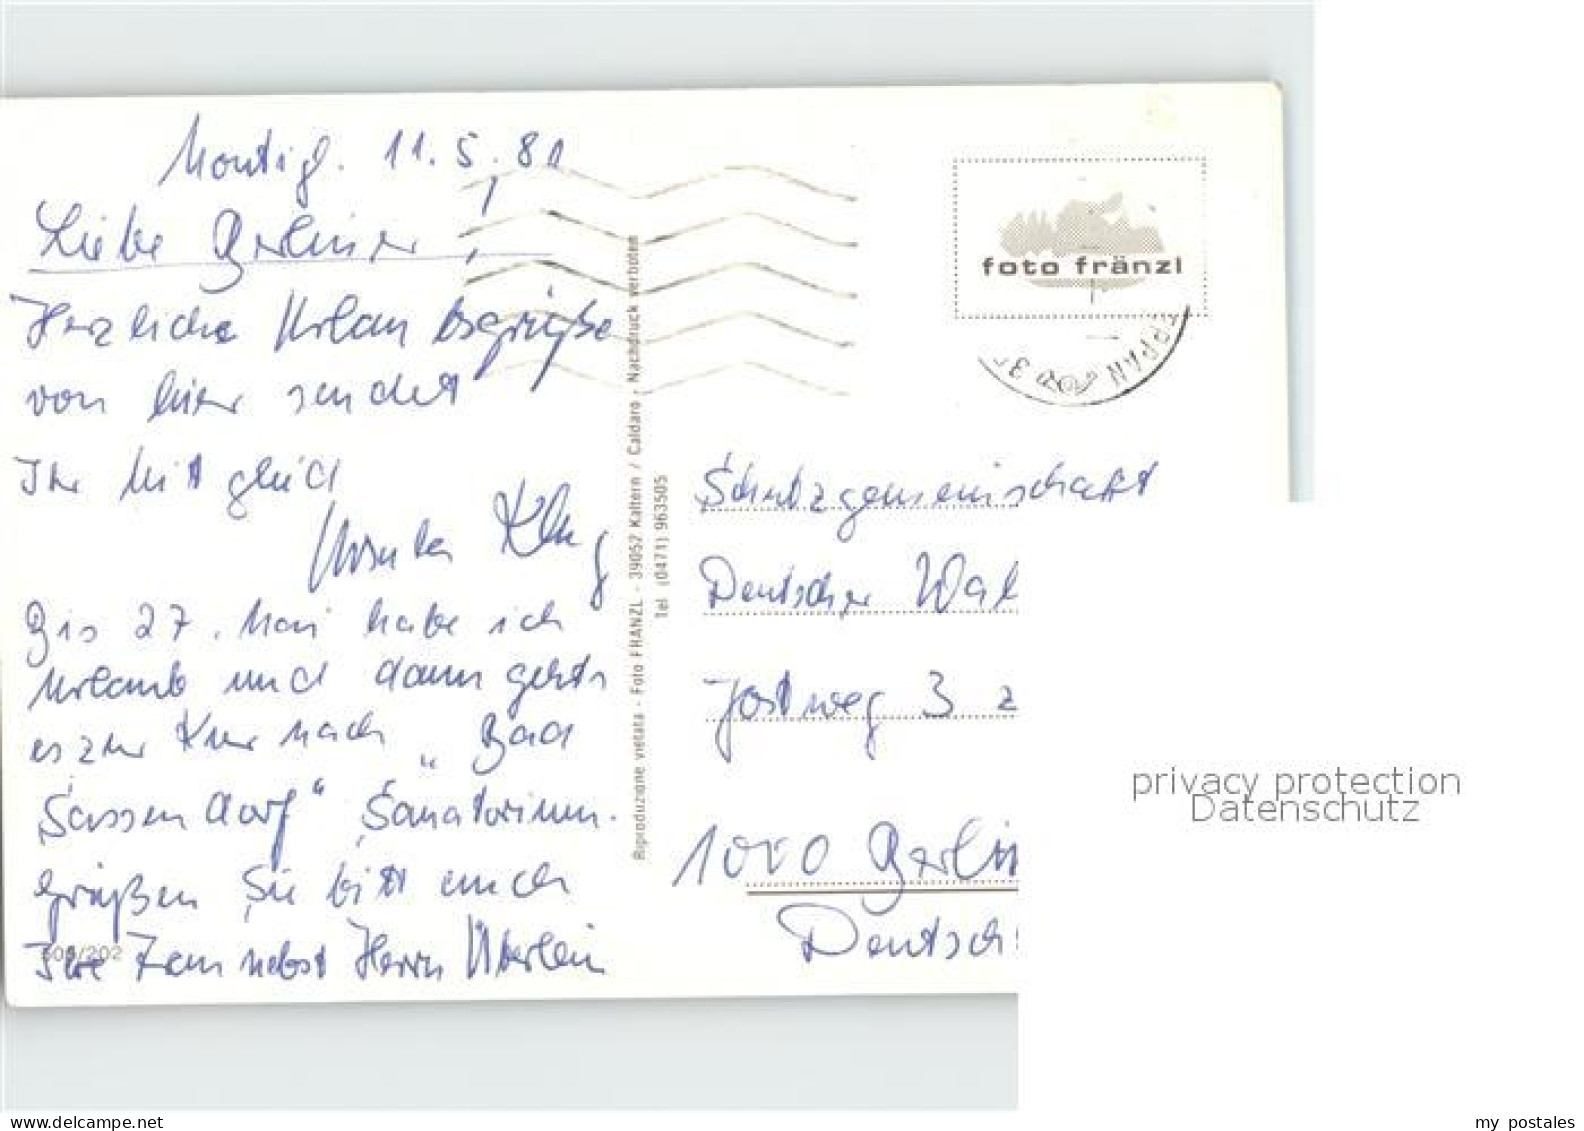 Montigl. 11.5.81
Liebe Berliner,
Herzliche Urlaubsgrüße
von hier sendet
Ihr Mitglied
Ursula Klug
Bis 27. Mai habe ich
Urlaub und dann gehts
es zur Kur nach „Bad
Sassendorf“ Sanatorium.
grüßen Sie bitte auch
Ihre Frau nebst Herrn Überlein
500/202
Riproduzione vietata - Foto FRÄNZL - 39052 Kaltern / Caldaro - Nachdruck verboten
Tel (0471) 963505
foto fränzl
EPPAN
Schutzgemeinschaft
Deutscher Wal
Jostweg 3 z
1000 Berlin
Deutsch
privacy protection
Datenschutz
my postales